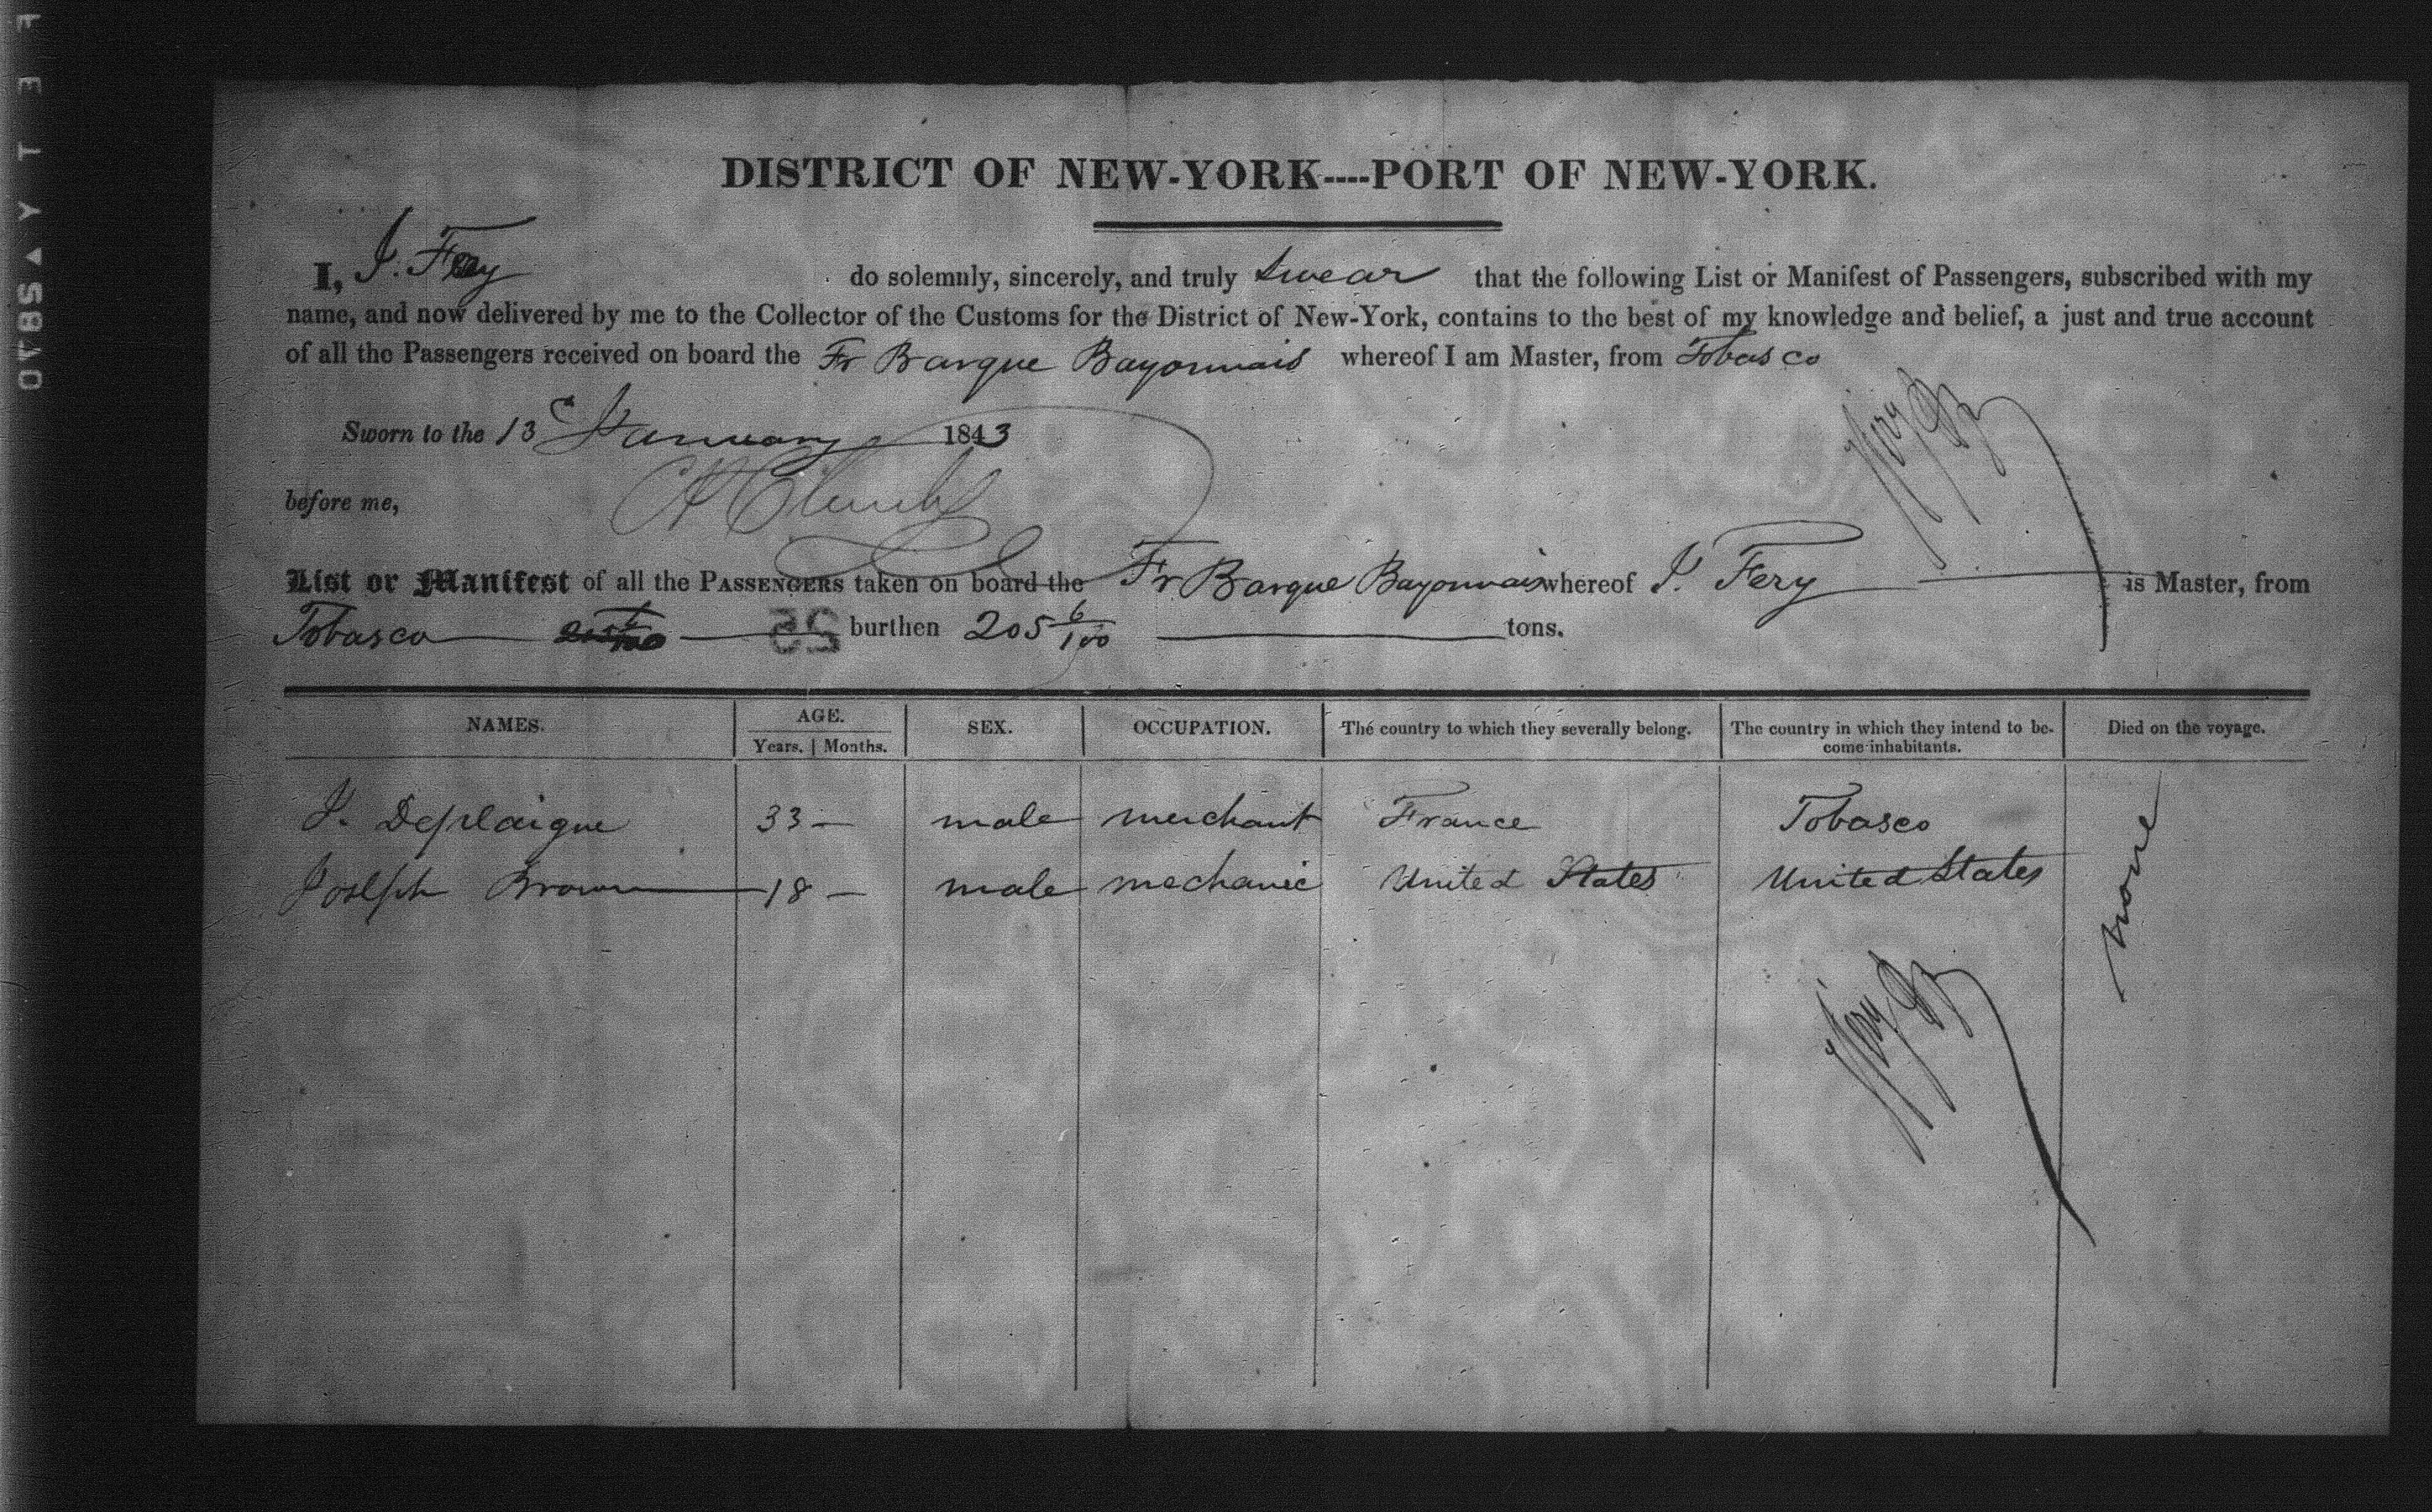 DISTRICT OF NEW-YORK----PORT OF NEW-YORK.
I, J. Fery do solemnly, sincerely, and truly swear that the following List or Manifest of Passengers, subscribed with my
name, and now delivered by me to the Collector of the Customs for the District of New-York, contains to the best of my knowledge and belief, a just and true account
of all the Passengers received on board the Fr Barque Bayonnais whereof I am Master, from Tobasco
Sworn to the 13 January 1843
before me,
List or Manifest of all the PASSENGERS taken on board the Fr Barque Bayonnais whereof J. Fery is Master, from
Tobasco burthen 205 6/100 tons.
NAMES. AGE. SEX. OCCUPATION. The country to which they severally belong. The country in which they intend to be-
Years. Months. come inhabitants. Died on the voyage.
J. Deplaigne 33 — male merchant France Tobasco
Joseph Brown 18 — male mechanic United States United States
none